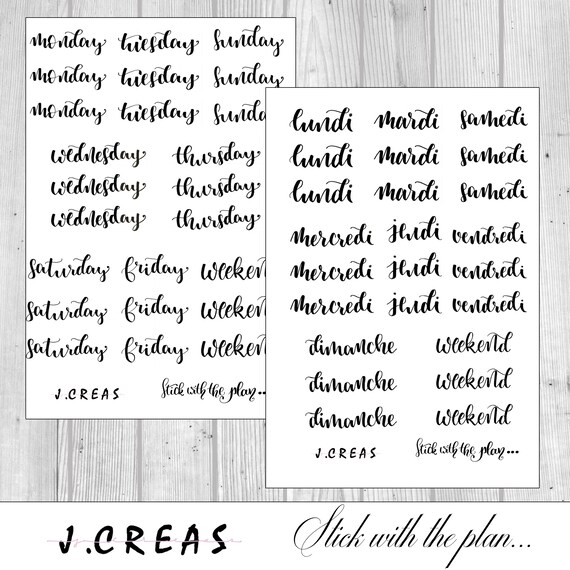 monday tuesday sunday
monday tuesday sunday
monday tuesday sunda
wednesday thursday
wednesday thursday
wednesday thursday
saturday friday weeken
saturday friday weeken
saturday friday weeken
J.CREAS Stick with the plan...
lundi mardi samedi
lundi mardi samedi
lundi mardi samedi
mercredi jeudi vendredi
mercredi jeudi vendredi
mercredi jeudi vendredi
dimanche weekend
dimanche weekend
dimanche weekend
J.CREAS Stick with the plan...
J.CREAS Stick with the plan...